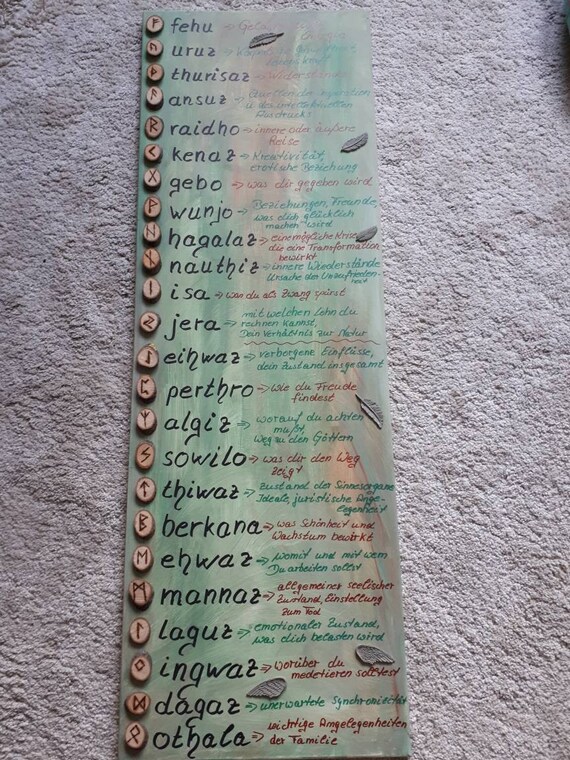 ᚠ fehu ⇒ Geld
ᚢ uruz ⇒
Lebenskraft
ᚦ thurisaz ⇒ Widerstände
ᚨ ansuz ⇒ Quellen der Inspiration
u. des intellektuellen
Ausdrucks
ᚱ raidho ⇒ innere oder äußere
Reise
ᚲ kenaz ⇒ Kreativität,
erotische Beziehung
ᚷ gebo ⇒ was dir gegeben wird
ᚹ wunjo ⇒ Beziehungen, Freunde,
was dich glücklich
machen wird
ᚺ hagalaz ⇒ eine mögliche Krise,
die eine Transformation
bewirkt
ᚾ nauthiz ⇒ innere Wiederstände
Ursache der Unzufrieden-
heit
ᛁ isa ⇒ was du als Zwang spürst
ᛃ jera ⇒ mit welchen Lohn du
rechnen kannst,
Dein Verhältnis zur Natur
ᛇ eihwaz ⇒ verborgene Einflüsse,
dein Zustand insgesamt
ᛈ perthro ⇒ wie du Freude
findest
ᛉ algiz ⇒ worauf du achten
mußt,
Weg zu den Göttern
ᛊ sowilo ⇒ was dir den Weg
zeigt
ᛏ thiwaz ⇒ Zustand der Sinnesorgane
Ideale, juristische Ange-
legenheit
ᛒ berkana ⇒ was Schönheit und
Wachstum bewirkt
ᛖ ehwaz ⇒ womit und mit wem
Du arbeiten sollst
ᛗ mannaz ⇒ allgemeiner seelischer
Zustand, Einstellung
zum Tod
ᛚ laguz ⇒ emotionaler Zustand,
was dich belasten wird
ᛜ ingwaz ⇒ worüber du
medetieren solltest
ᛞ dagaz ⇒ unerwartete Synchronizität
ᛟ othala ⇒ wichtige Angelegenheiten
der Familie